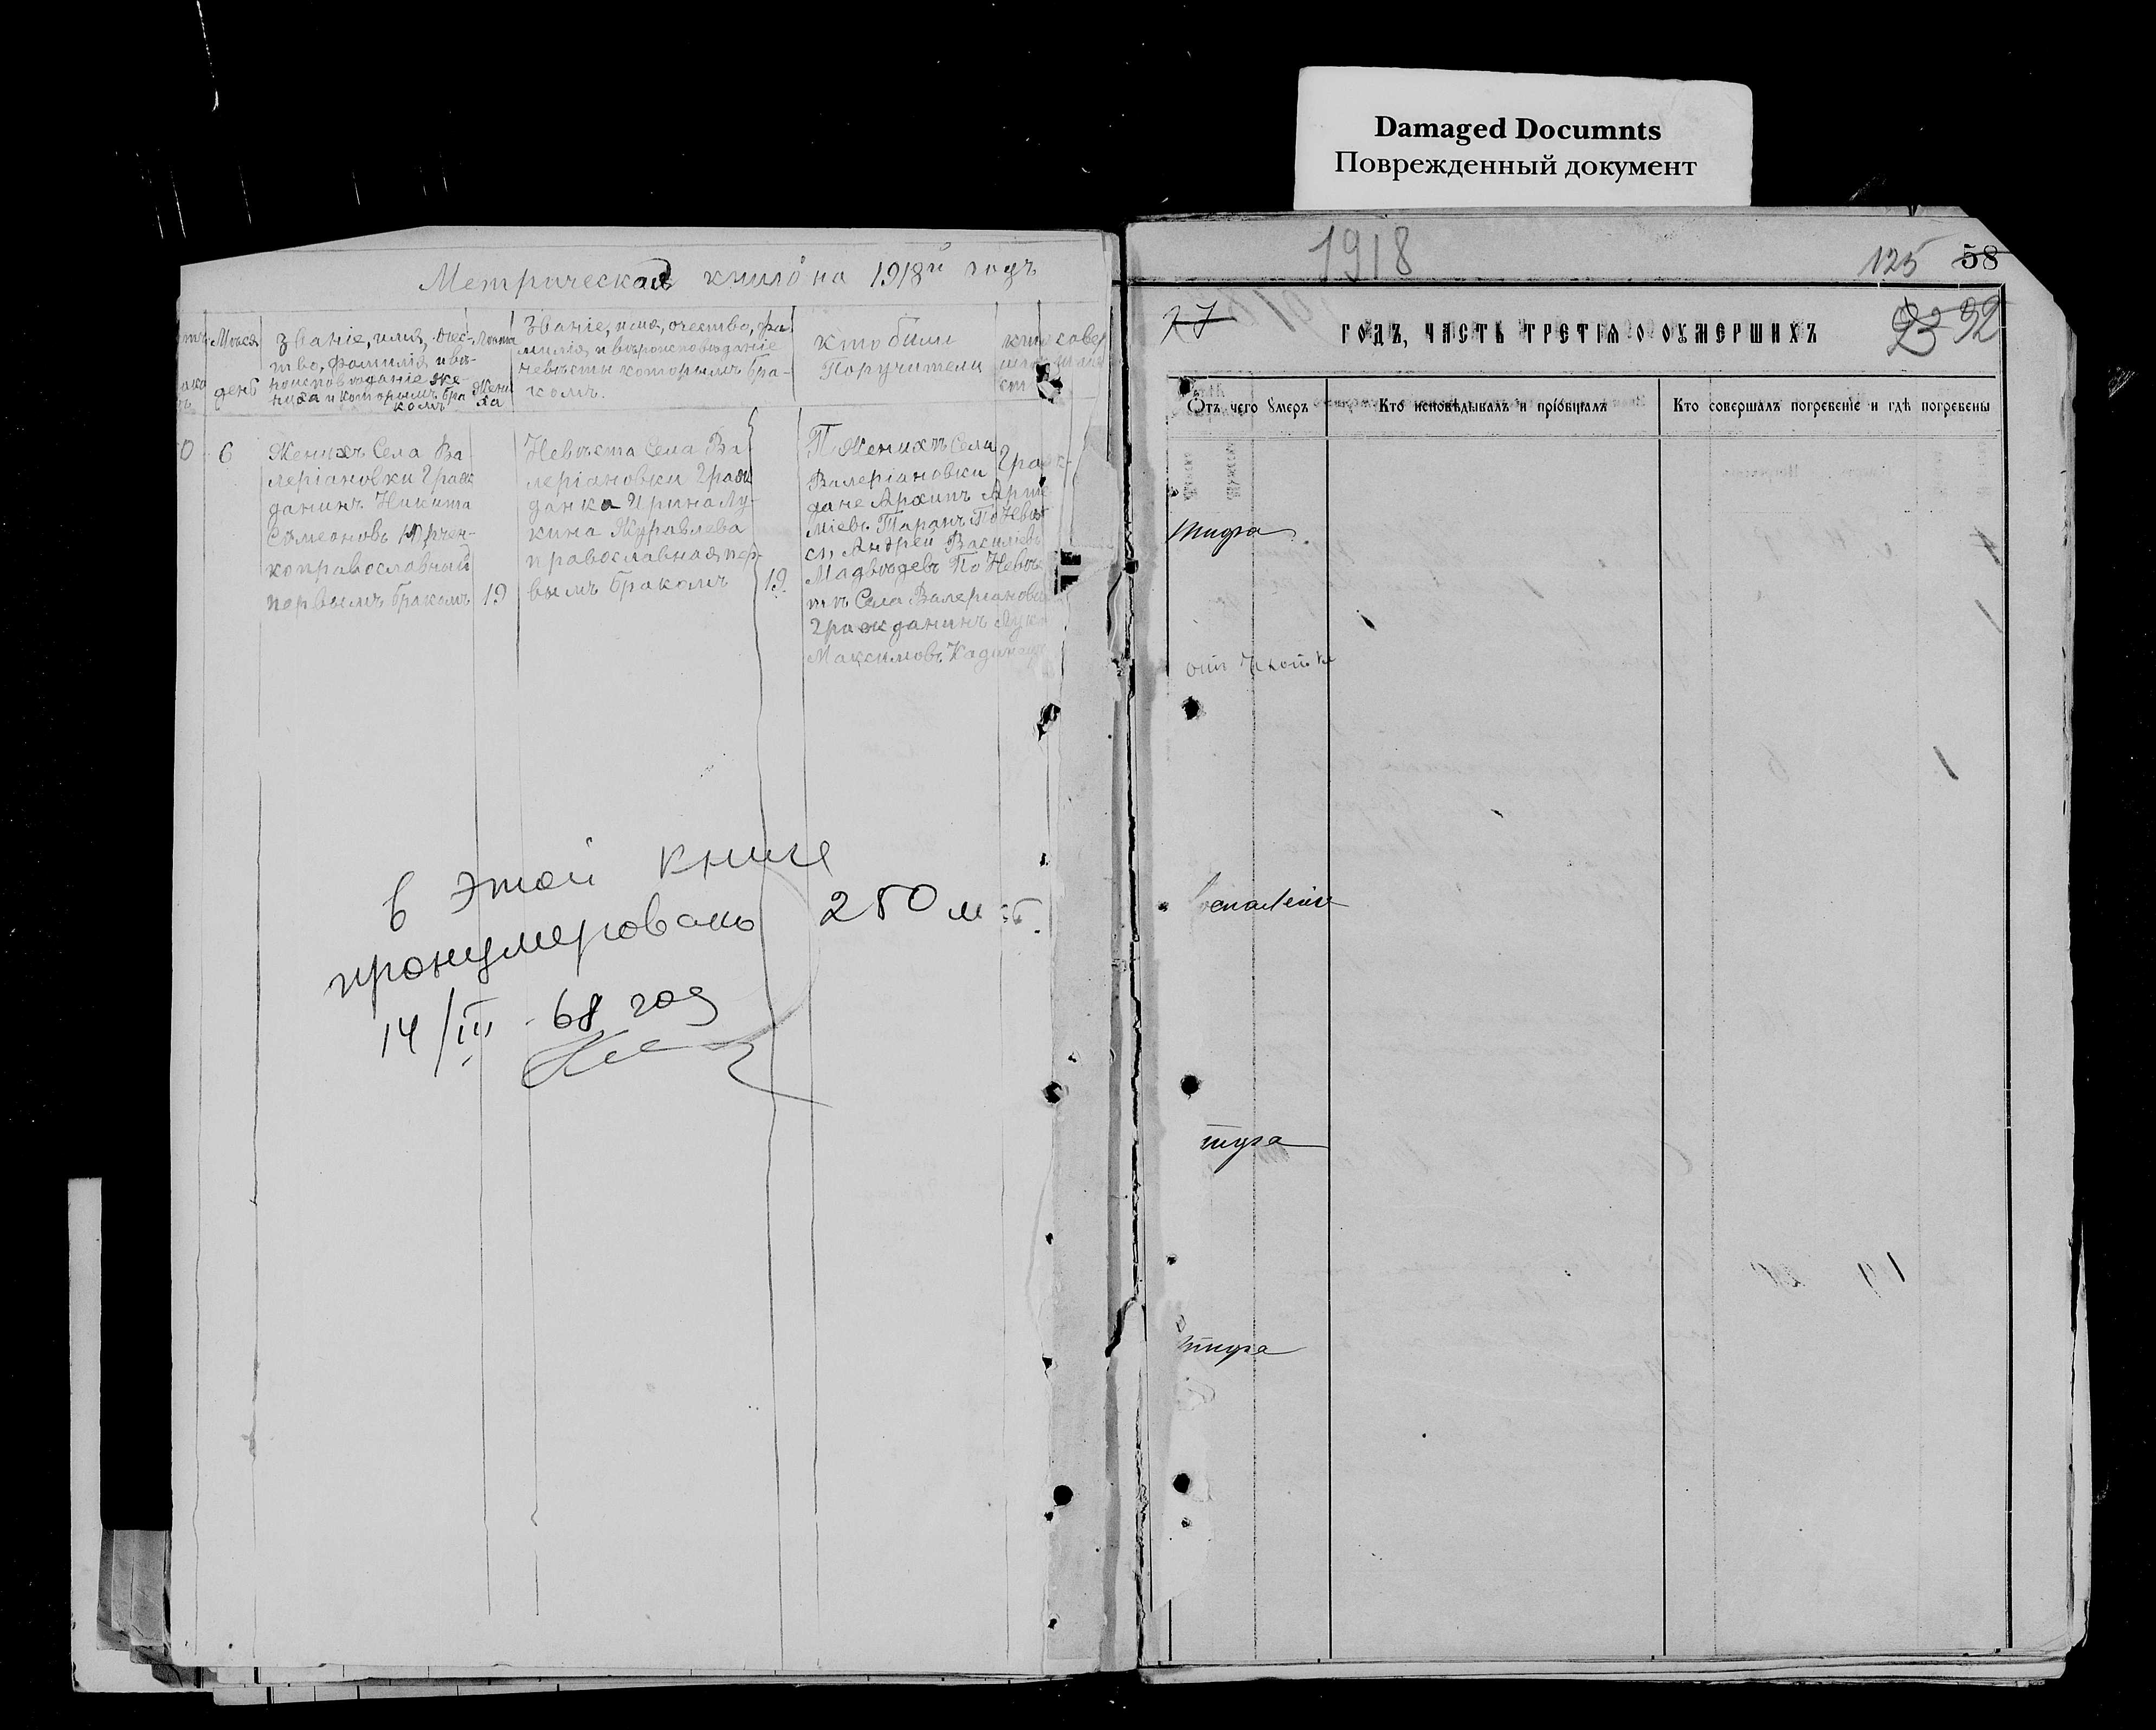 Damaged Documnts
Поврежденный документ
Метрическая книга на 1918й годъ
Мѣсяц
день
Званіе, имя, отчес-
тво, фамилія и вѣ-
роисповѣданіе же-
ниха и которымъ бра
комъ
Лѣта
Жени
ха
Званіе, имя, отчество, фа
милія и вѣроисповѣданіе
невѣсты которымъ бра-
комъ.
Кто были
Поручители
6
Женихъ Села Ва
леріановки Граж
данинъ Никита
Симеоновъ Юрчен-
ко православный
первымъ бракомъ
19
Невѣста Села Ва
леріановки Граж
данка Ирина Лу-
кина Журавлева
православная пер-
вымъ бракомъ
19.
П Женихъ Села
Валеріановки Граж-
дане Архипъ Арте
міевъ Таранъ По Невѣ
с, Андрей Василіевъ
Мадвѣдевъ По Невѣс
тѣ Села Валеріановки
Гражданинъ Лука
Максимовъ
в этой книге
пронумеровано 250
14/III - 68 год
1918
125 58
27
92
ГОДЪ, ЧАСТЬ ТРЕТІѦ О ОУМЕРШИХЪ
Ѿтъ чего ᲂумеръ
Кто исповѣдывалъ и пріобщалъ
Кто совершалъ погребеніе и гдѣ погребены